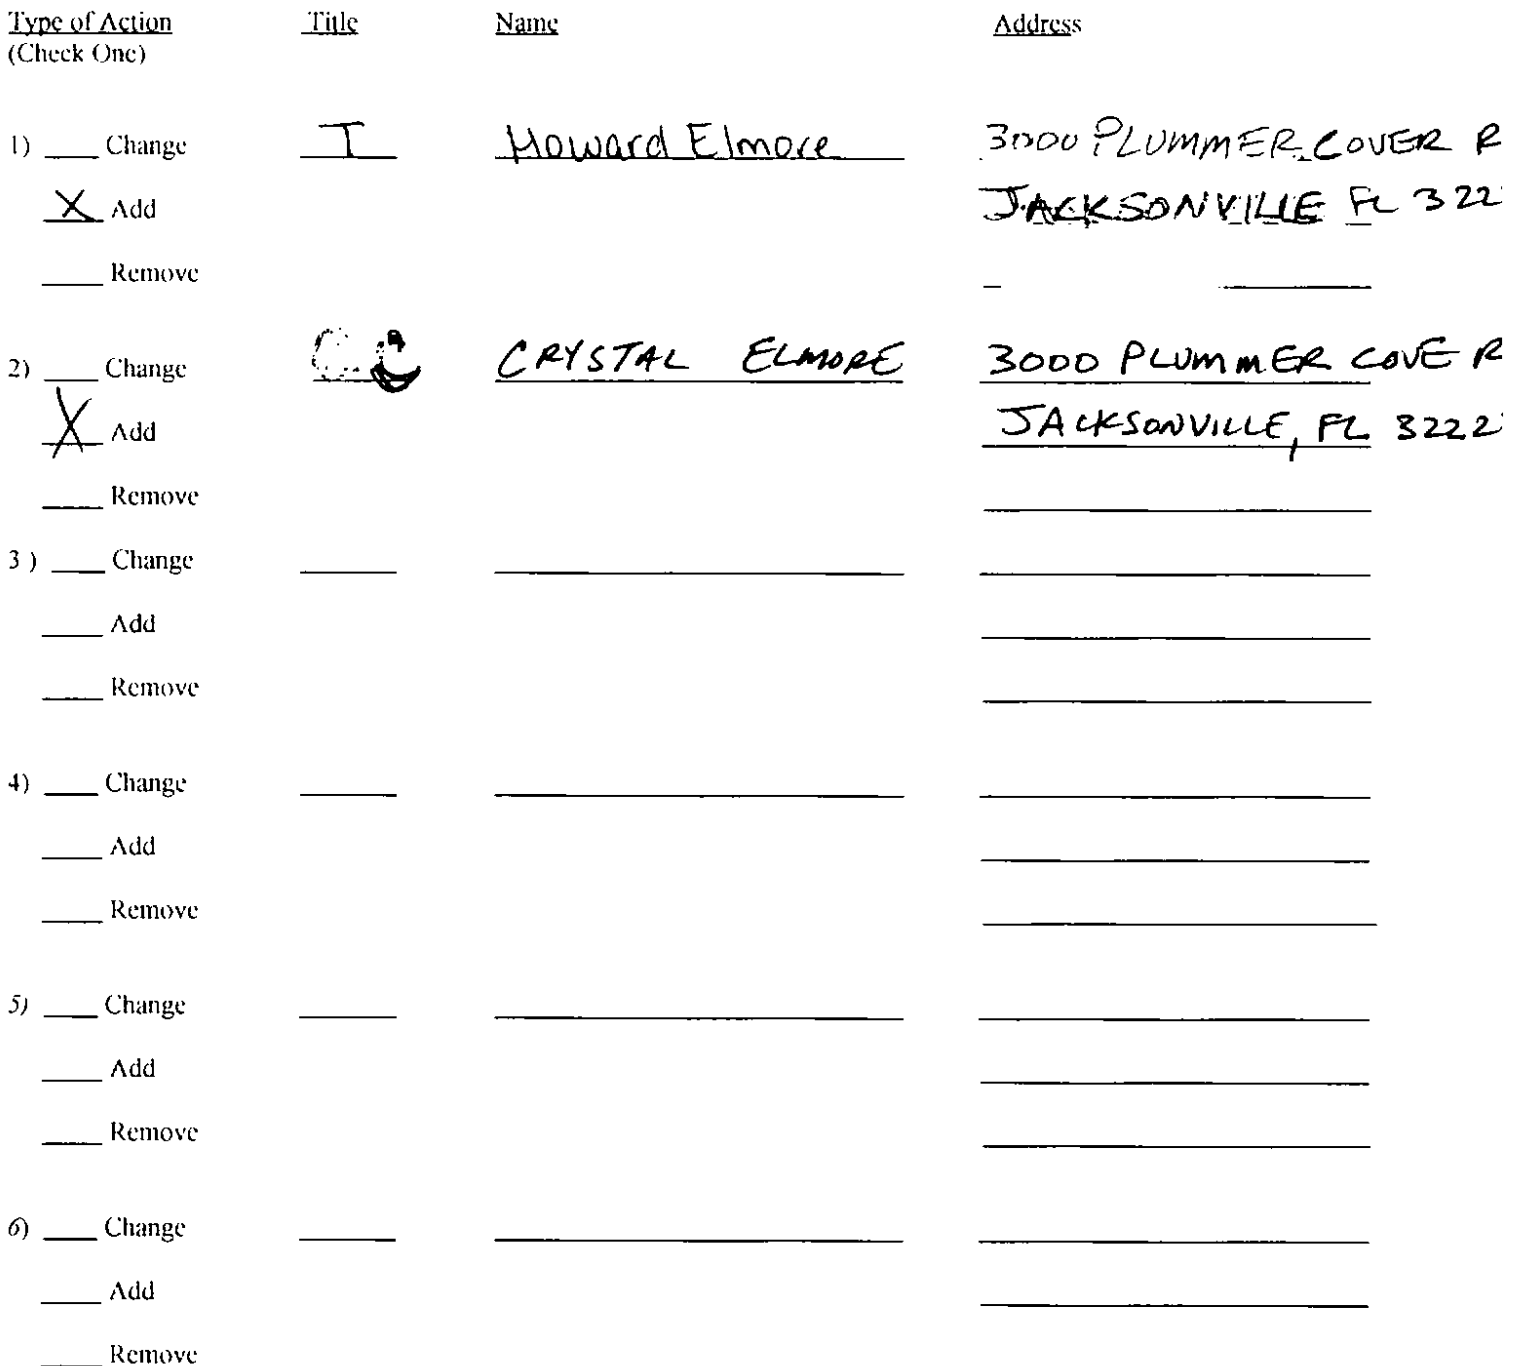 Type of Action Title Name Address
(Check One)
1) ____ Change T Howard Elmore 3000 PLUMMER COVER R
X Add JACKSONVILLE FL 322
____ Remove
2) ____ Change CRYSTAL ELMORE 3000 PLUMMER COVE R
X Add JACKSONVILLE, FL 3222
____ Remove
3 ) ____ Change
____ Add
____ Remove
4) ____ Change
____ Add
____ Remove
5) ____ Change
____ Add
____ Remove
6) ____ Change
____ Add
____ Remove